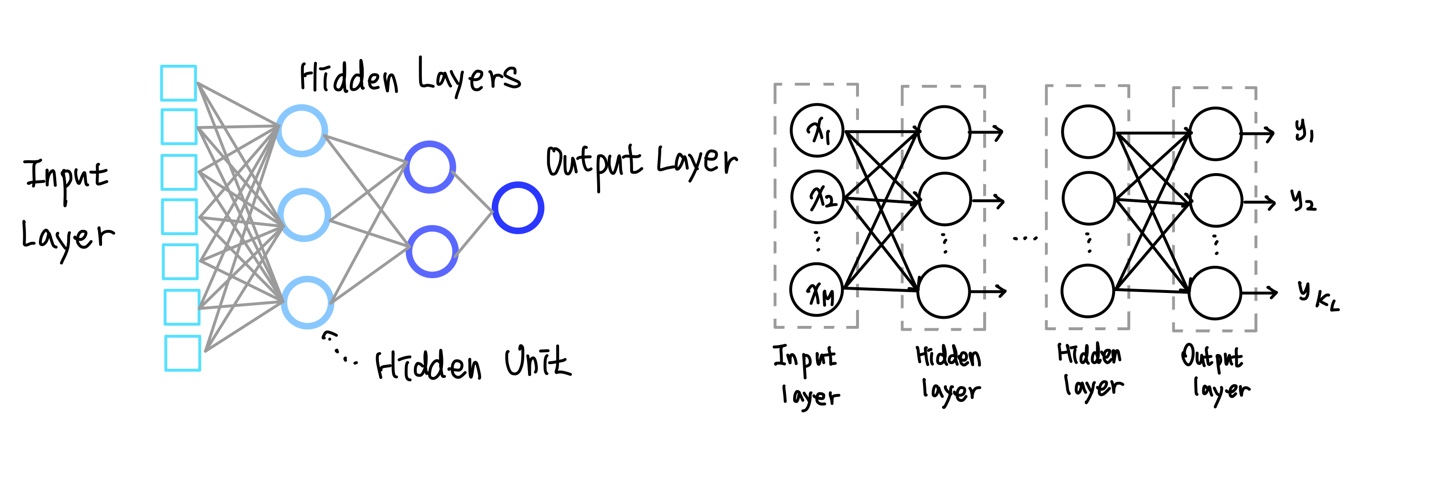 Hidden Layers
Input
Layer
Output Layer
Hidden Unit
x₁
x₂
⋮
x_M
⋮
...
⋮
⋮
y₁
y₂
y_{K_L}
Input
layer
Hidden
layer
Hidden
layer
Output
layer